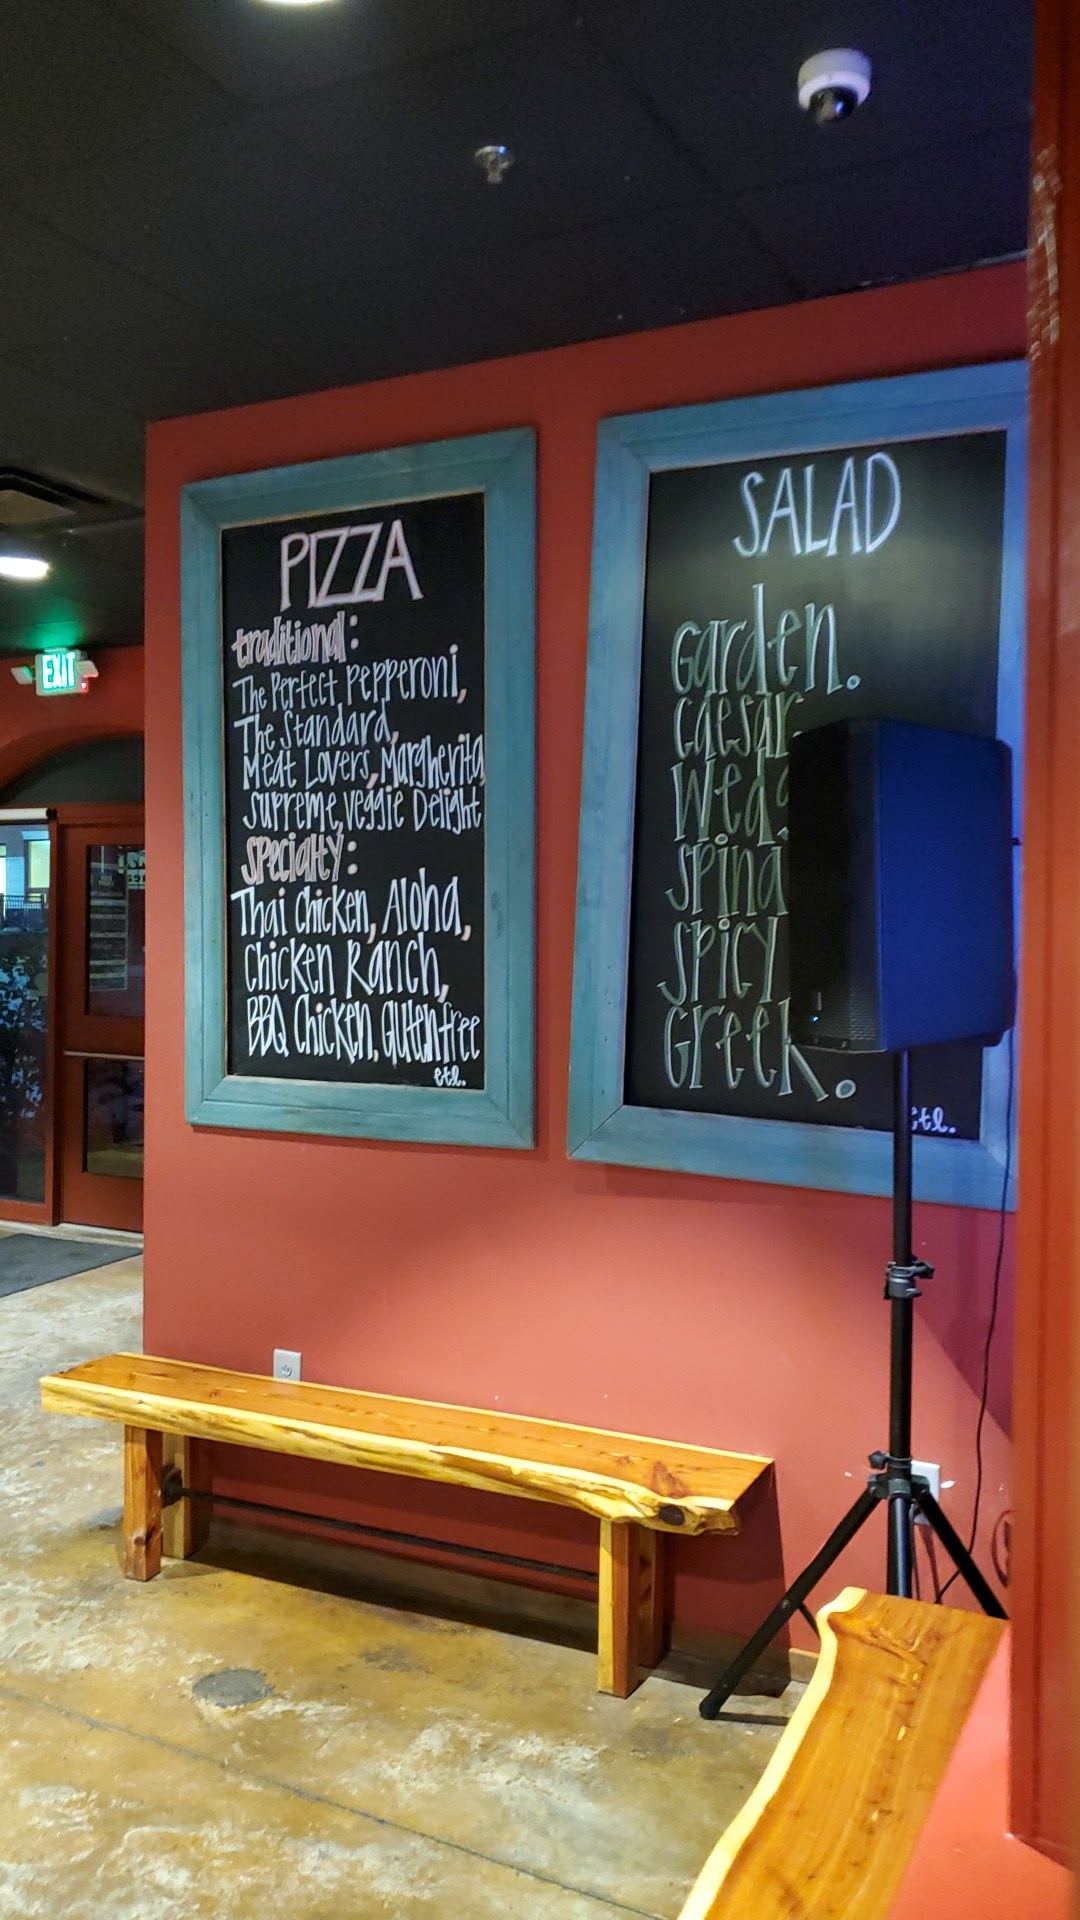 EXIT
PIZZA
traditional:
The Perfect Pepperoni,
The Standard,
Meat Lovers, Margherita,
Supreme, Veggie Delight
Specialty:
Thai Chicken, Aloha,
Chicken Ranch,
BBQ Chicken, Gluten free
etl.
SALAD
Garden.
Caesar
Spicy
Greek.
etl.